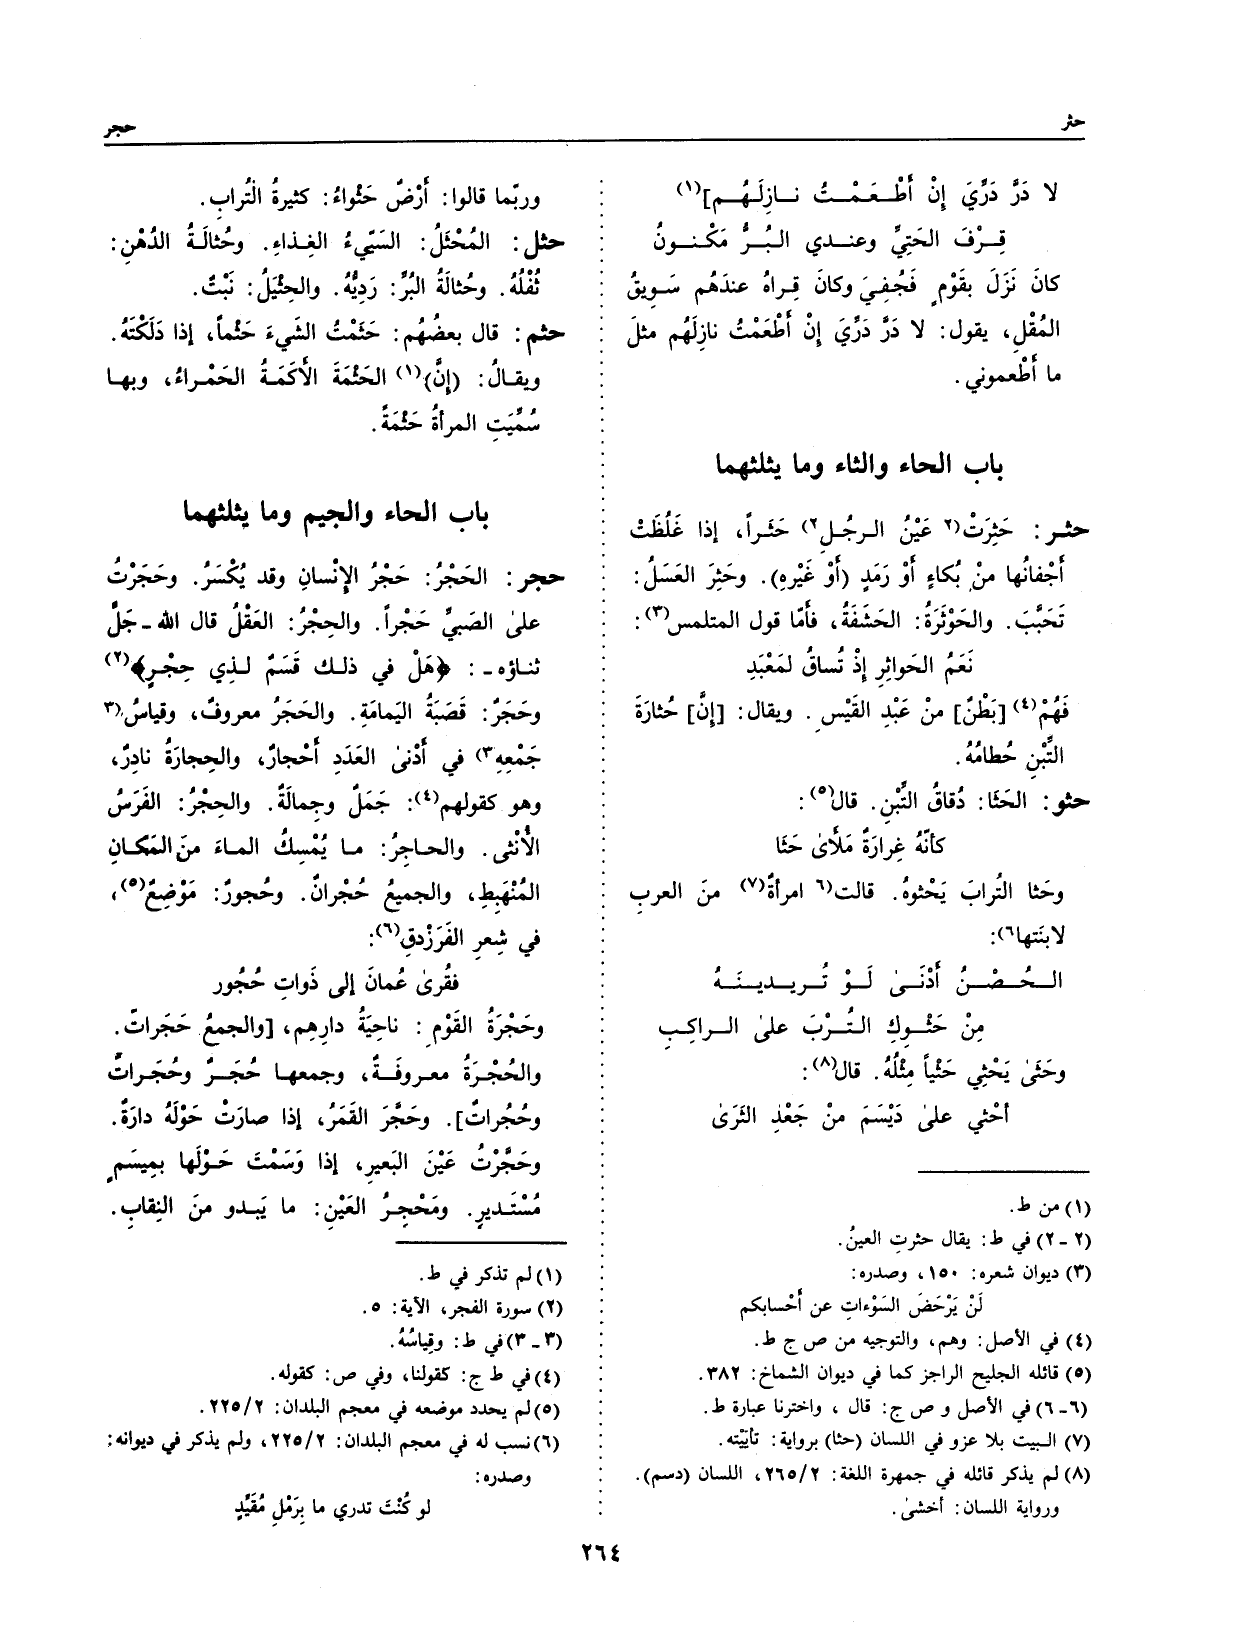 حثر
حجر
لا دَرَّ دَرِّيَ إِنْ أَطْعَمْتُ نازِلَهُم](١)
قِرْفَ الحَتِيِّ وعندي البُرُّ مَكْنونُ
كانَ نَزَلَ بقَوْمٍ فَجُفِيَ وكانَ قِراهُ عندَهُم سَويقُ
المُقْلِ، يقول: لا دَرَّ دَرِّيَ إِنْ أَطْعَمْتُ نازِلَهُم مثلَ
ما أَطْعموني.
باب الحاء والثاء وما يثلثهما
حثر: حَثِرَتْ(٢ عَيْنُ الرجُلِ٢) حَثَراً، إذا غَلُظَتْ
أَجْفانُها منْ بُكاءٍ أَوْ رَمَدٍ (أَوْ غَيْرِهِ). وحَثِرَ العَسَلُ:
تَحَبَّبَ. والحَوْثَرَةُ: الحَشَفَةُ، فأمّا قول المتلمس(٣):
نَعَمُ الحَواثِرِ إِذْ تُساقُ لمَعْبَدِ
فَهُمْ(٤) [بَطْنٌ] منْ عَبْدِ القَيْسِ. ويقال: [إِنَّ] حُثارَةَ
التِّبْنِ حُطامُهُ.
حثو: الحَثَا: دُقاقُ التِّبْنِ. قال(٥):
كأنّهُ غِرارَةٌ مَلْأَىٰ حَثَا
وحَثا التُّرابَ يَحْثوهُ. قالت(٦ امرأةٌ(٧) منَ العربِ
لابنَتها٦):
الحُصْنُ أَدْنَىٰ لَوْ تُريدينَهُ
مِنْ حَثْوِكِ التُّرْبَ علىٰ الراكِبِ
وحَثَىٰ يَحْثِي حَثْياً مِثْلُهُ. قال(٨):
أحْثي علىٰ دَيْسَمَ منْ جَعْدِ الثَرَىٰ
(١) من ط.
(٢ - ٢) في ط: يقال حثرتِ العينُ.
(٣) ديوان شعره: ١٥٠، وصدره:
لَنْ يَرْحَضَ السَوْءاتِ عن أحْسابكم
(٤) في الأصل: وهم، والتوجيه من ص ج ط.
(٥) قائله الجليح الراجز كما في ديوان الشماخ: ٣٨٢.
(٦ - ٦) في الأصل و ص ج: قال، واخترنا عبارة ط.
(٧) البيت بلا عزو في اللسان (حثا) برواية: تأيَّيتِه.
(٨) لم يذكر قائله في جمهرة اللغة: ٢٦٥/٢، اللسان (دسم).
ورواية اللسان: أخشىٰ.
وربّما قالوا: أَرْضٌ حَثْواءُ: كثيرةُ التُرابِ.
حثل: المُحْثَلُ: السَيِّيءُ الغِذاءِ. وحُثالَةُ الدُهْنِ:
ثُفْلُهُ. وحُثالَةُ البُرِّ: رَدِيُّهُ. والحِثْيَلُ: نَبْتٌ.
حثم: قال بعضُهُم: حَثَمْتُ الشَيءَ حَثْماً، إذا دَلَكْتَهُ.
ويقالُ: (إنَّ)(١) الحَثْمَةَ الأَكَمَةُ الحَمْراءُ، وبها
سُمِّيَتِ المرأةُ حَثْمَةً.
باب الحاء والجيم وما يثلثهما
حجر: الحَجْرُ: حَجْرُ الإنْسانِ وقد يُكْسَرُ. وحَجَرْتُ
علىٰ الصَبيِّ حَجْراً. والحِجْرُ: العَقْلُ قال الله - جَلَّ
ثناؤه -: ﴿هَلْ في ذلك قَسَمٌ لِذي حِجْرٍ﴾(٢)
وحَجَرٌ: قَصَبَةُ اليَمامَةِ. والحَجَرُ معروفٌ، وقياسُ(٣
جَمْعِهِ٣) في أَدْنىٰ العَدَدِ أَحْجارٌ، والحِجارَةُ نادِرٌ،
وهو كقولهم(٤): جَمَلٌ وجِمالَةٌ. والحِجْرُ: الفَرَسُ
الأُنْثى. والحاجِرُ: ما يُمْسِكُ الماءَ منَ المَكانِ
المُنْهَبِطِ، والجميعُ حُجْرانٌ. وحُجورٌ: مَوْضِعٌ(٥)،
في شِعرِ الفَرَزْدقِ(٦):
فقُرىٰ عُمانَ إلى ذَواتِ حُجُور
وحَجْرَةُ القَوْمِ: ناحِيَةُ دارِهِم، [والجمعُ حَجَراتٌ.
والحُجْرَةُ معروفَةٌ، وجمعها حُجَرٌ وحُجَراتٌ
وحُجُراتٌ]. وحَجَّرَ القَمَرُ، إذا صارَتْ حَوْلَهُ دارَةٌ.
وحَجَّرْتُ عَيْنَ البَعيرِ، إذا وَسَمْتَ حَوْلَها بمِيسَمٍ
مُسْتَديرٍ. ومَحْجِرُ العَيْنِ: ما يَبدو منَ النِقابِ.
(١) لم تذكر في ط.
(٢) سورة الفجر، الآية: ٥.
(٣ - ٣) في ط: وقِياسُهُ.
(٤) في ط ج: كقولنا، وفي ص: كقوله.
(٥) لم يحدد موضعه في معجم البلدان: ٢٢٥/٢.
(٦) نسب له في معجم البلدان: ٢٢٥/٢، ولم يذكر في ديوانه:
وصدره:
لو كُنْتَ تدري ما بِرَمْلِ مُقَيِّدٍ
٢٦٤